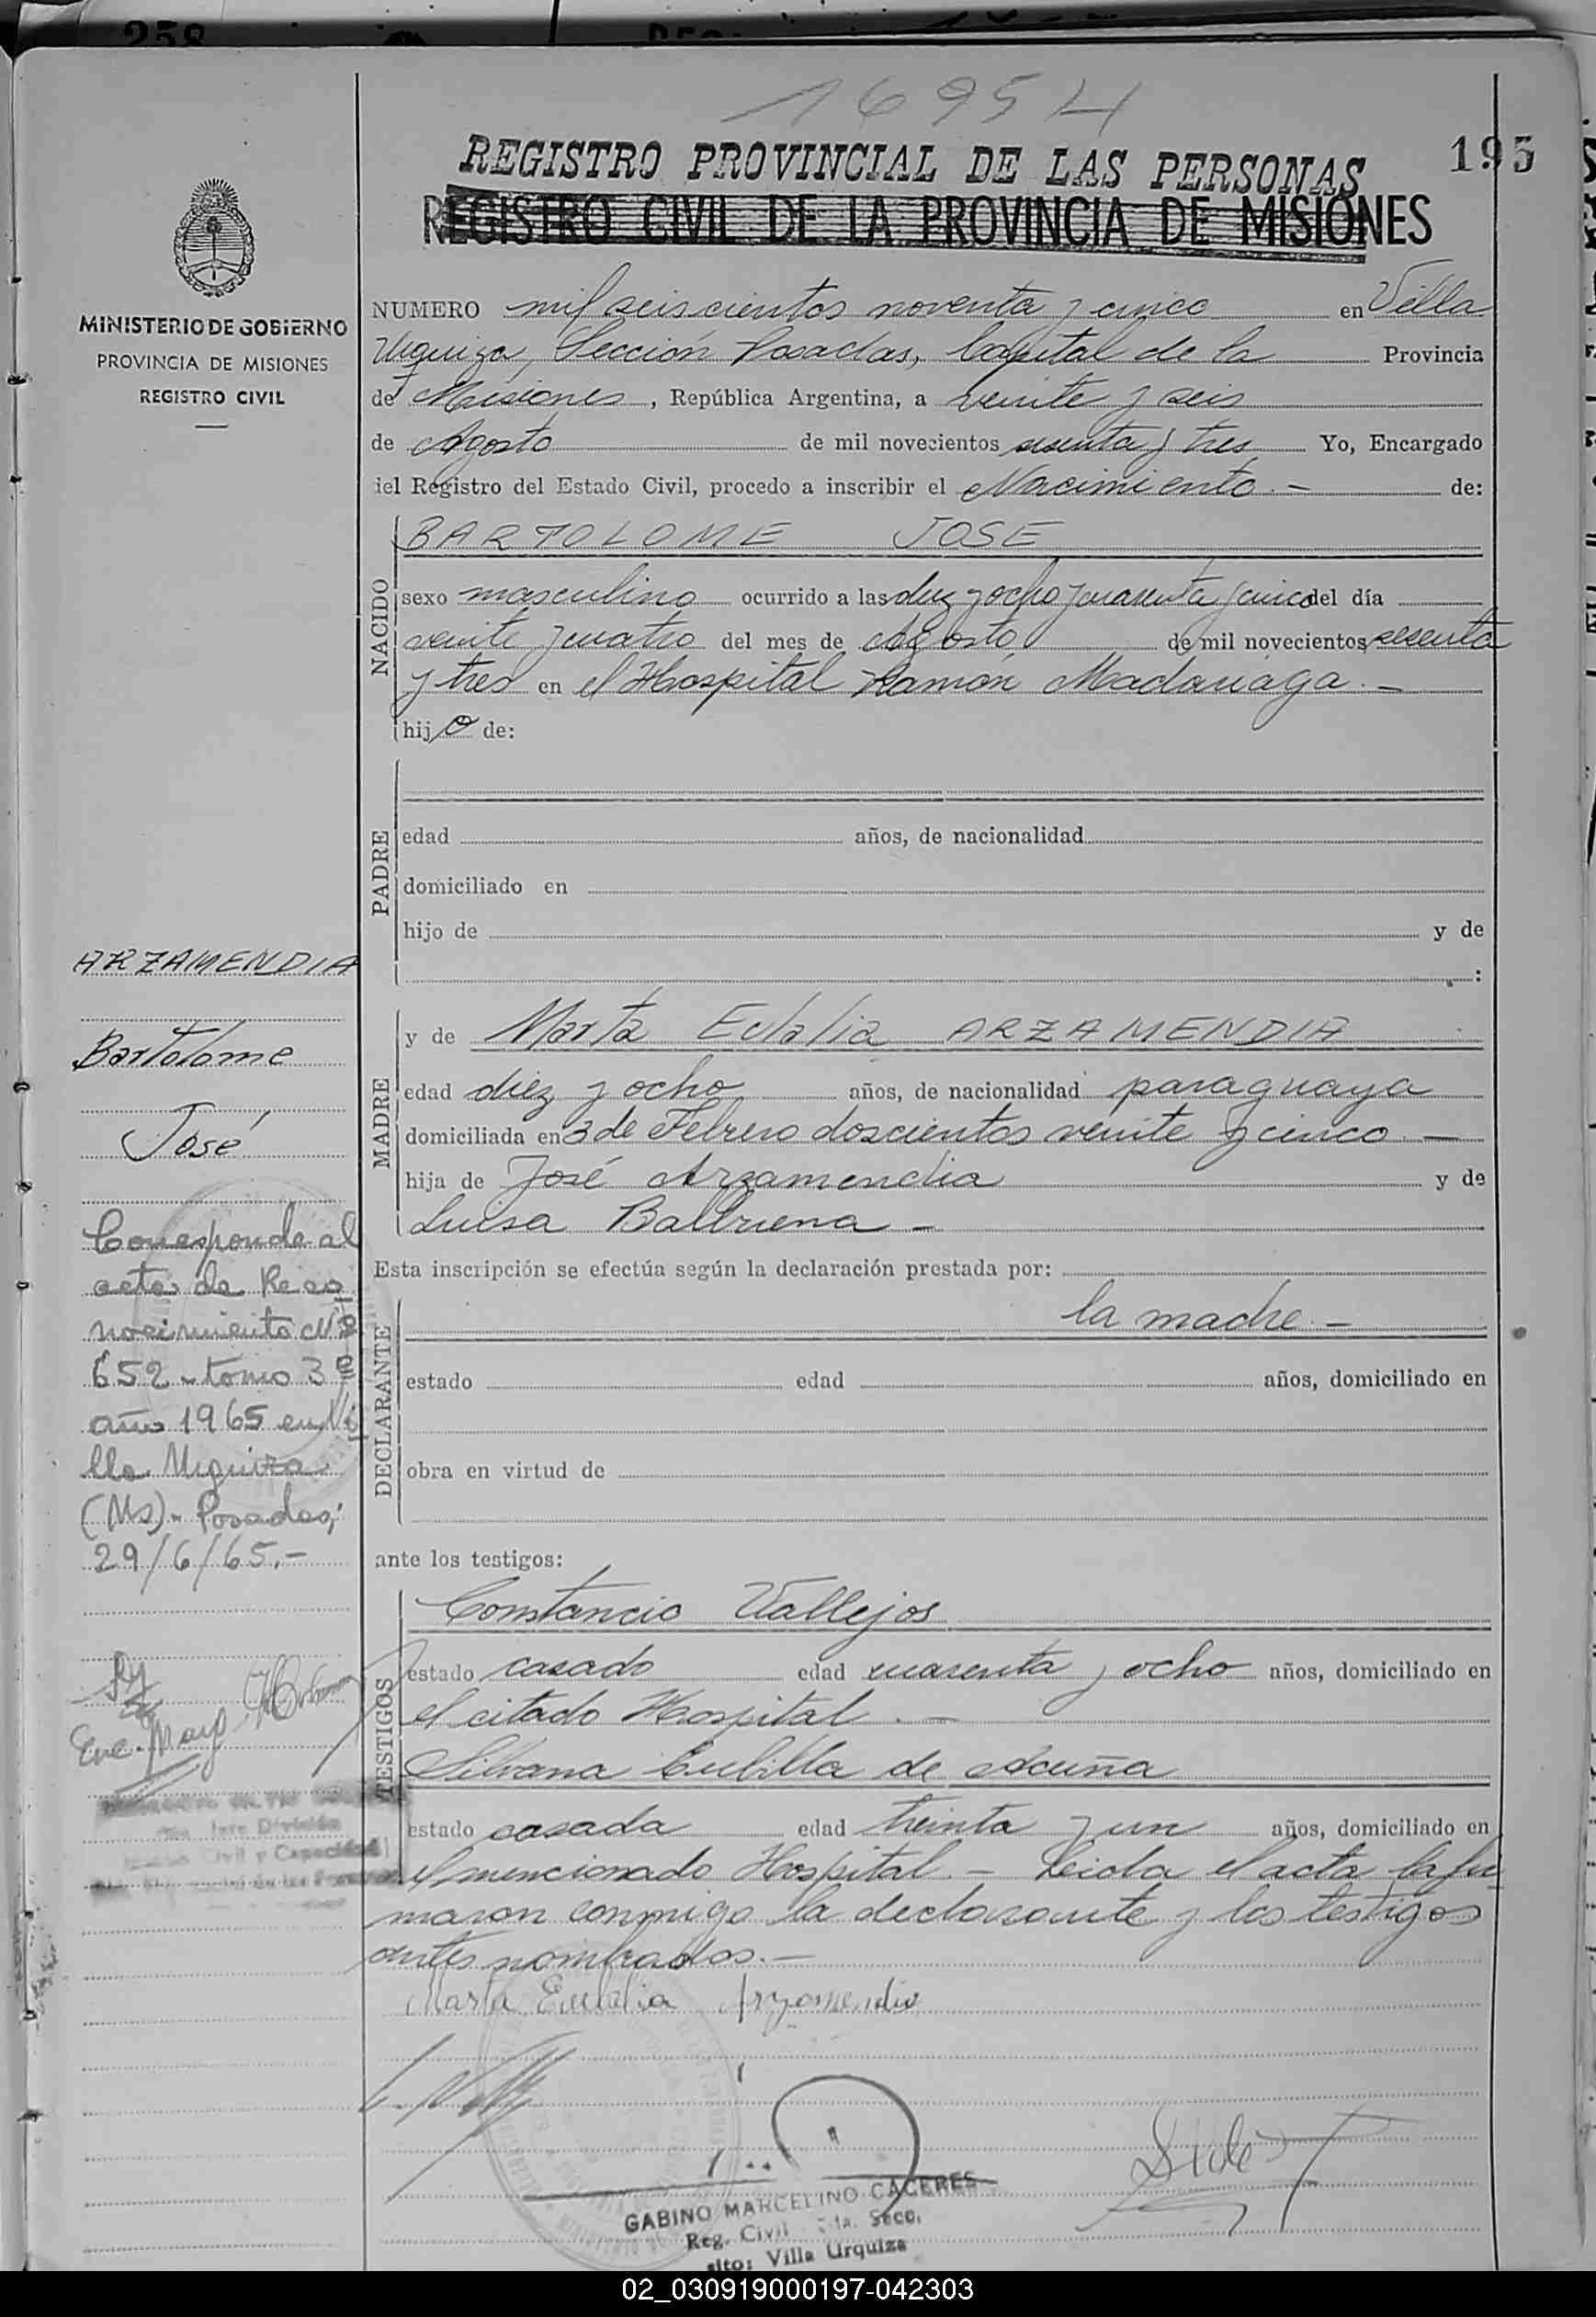 258
1695 H
195
REGISTRO PROVINCIAL DE LAS PERSONAS
REGISTRO CIVIL DE LA PROVINCIA DE MISIONES
MINISTERIO DE GOBIERNO
PROVINCIA DE MISIONES
REGISTRO CIVIL
NUMERO mil seiscientos noventa y cinco en Villa
Urquiza, Sección Posadas, Capital de la Provincia
de Misiones, República Argentina, a veinte y seis
de Agosto de mil novecientos sesenta y tres Yo, Encargado
del Registro del Estado Civil, procedo a inscribir el Nacimiento.- de:
NACIDO
BARTOLOME JOSE
sexo masculino ocurrido a las diez y ocho y cuarenta y cinco del día
veinte y cuatro del mes de Agosto de mil novecientos sesenta
y tres en el Hospital Ramón Madariaga.-
hijo de:
PADRE
edad años, de nacionalidad
domiciliado en
hijo de y de
:
MADRE
y de Marta Eulalia ARZAMENDIA
edad diez y ocho años, de nacionalidad paraguaya
domiciliada en 3 de Febrero doscientos veinte y cinco.-
hija de José Arzamendia y de
Luisa Balbuena -
Esta inscripción se efectúa según la declaración prestada por:
DECLARANTE
la madre.-
estado edad años, domiciliado en
obra en virtud de
ante los testigos:
TESTIGOS
Constancio Vallejos
estado casado edad cuarenta y ocho años, domiciliado en
el citado Hospital.-
Silvana Cubilla de Acuña
estado casada edad treinta y un años, domiciliado en
el mencionado Hospital.- Leida el acta la fir
maron conmigo la declarante y los testigos
antes nombrados.-
Marta Eulalia Arzamendia
GABINO MARCELINO CACERES
Reg. Civil Secc.
sito: Villa Urquiza
ARZAMENDIA
Bartolome
José
Corresponde al
acta de Reco
nocimiento Nº
652 - tomo 3º
año 1965 en Vi
lla Urquiza
(Ms)- Posadas,
29/6/65.-
Enc. Mayo
División
Civil y Capacidad
02_030919000197-042303